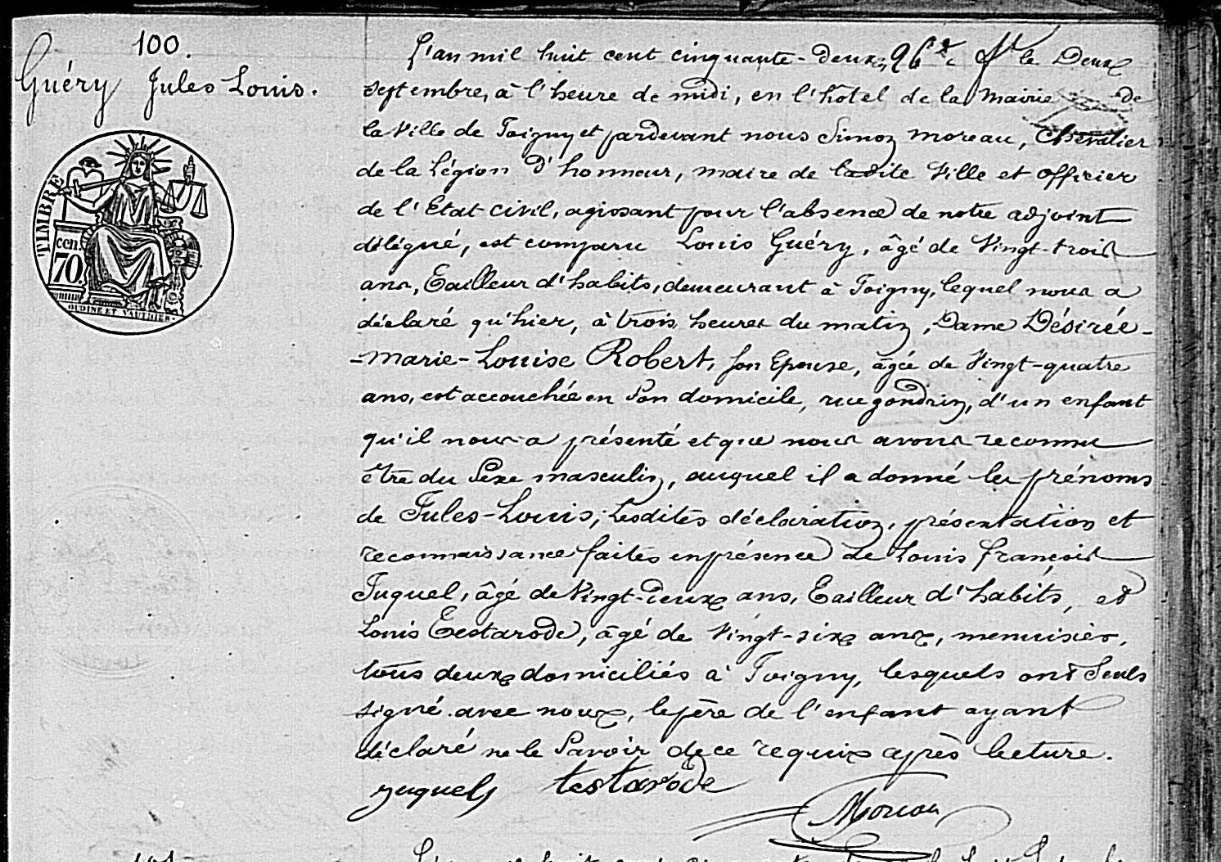 100.
Guéry Jules Louis.
TIMBRE
cen.
70
OUDINE ET VAUTHIER.
L'an mil huit cent cinquante-deux, le Deux
septembre, à l'heure de midi, en l'hôtel de la Mairie de
la Ville de Joigny et pardevant nous Simon Moreau, Chevalier
de la Légion d'honneur, maire de ladite Ville et officier
de l'Etat-civil, agissant pour l'absence de notre adjoint
délégué, est comparu Louis Guéry, âgé de Vingt-trois
ans, Tailleur d'habits, demeurant à Joigny, lequel nous a
déclaré qu'hier, à trois heures du matin, Dame Désirée-
-Marie-Louise Robert, son Epouse, âgée de Vingt-quatre
ans, est accouchée en Son domicile, rue gondrin, d'un enfant
qu'il nous a présenté et que nous avons reconnu
être du Sexe masculin, auquel il a donné les prénoms
de Jules-Louis; Lesdites déclaration, présentation et
reconnaissance faites en présence de Louis françois
Juquel, âgé de Vingt-deux ans, Tailleur d'habits, et
Louis Testarode, âgé de Vingt-six ans, menuisier,
tous deux domiciliés à Joigny, lesquels ont Seuls
signé avec nous, le père de l'enfant ayant
déclaré ne le Savoir de ce requis après lecture.
juquel testarode
Moreau
101